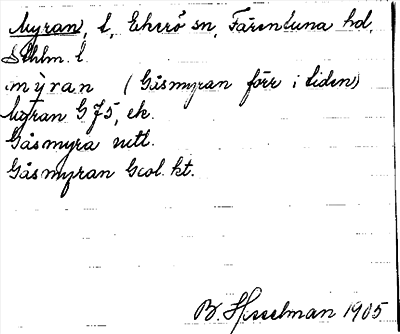 Myran, l, Ekerö sn, Färentuna hd,
Sthlm. l.
mỳran (Gåsmyran förr i tiden)
Myran G J5, ek.
Gåsmyra utl.
Gåsmyran Geol. kt.
B. Hesselman 1905